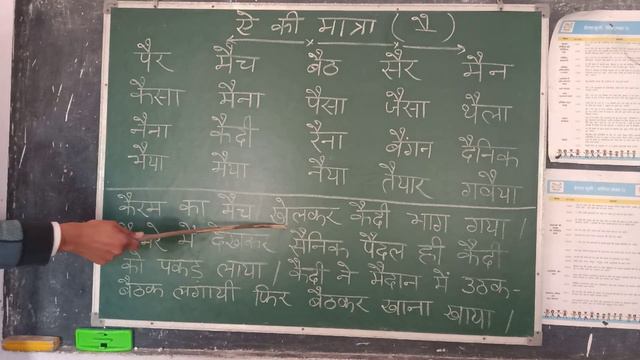 ऐ की मात्रा ( ै )
पैर मैच बैठ सैर मैन
कैसा मैना पैसा जैसा थैला
नैना कैदी रैना बैंगन दैनिक
भैया मैया नैया तैयार गवैया
कैरम का मैच खेलकर कैदी भाग गया।
में देखकर सैनिक पैदल ही कैदी
को पकड़ लाया। कैदी ने मैदान में उठक-
बैठक लगायी फिर बैठकर खाना खाया।